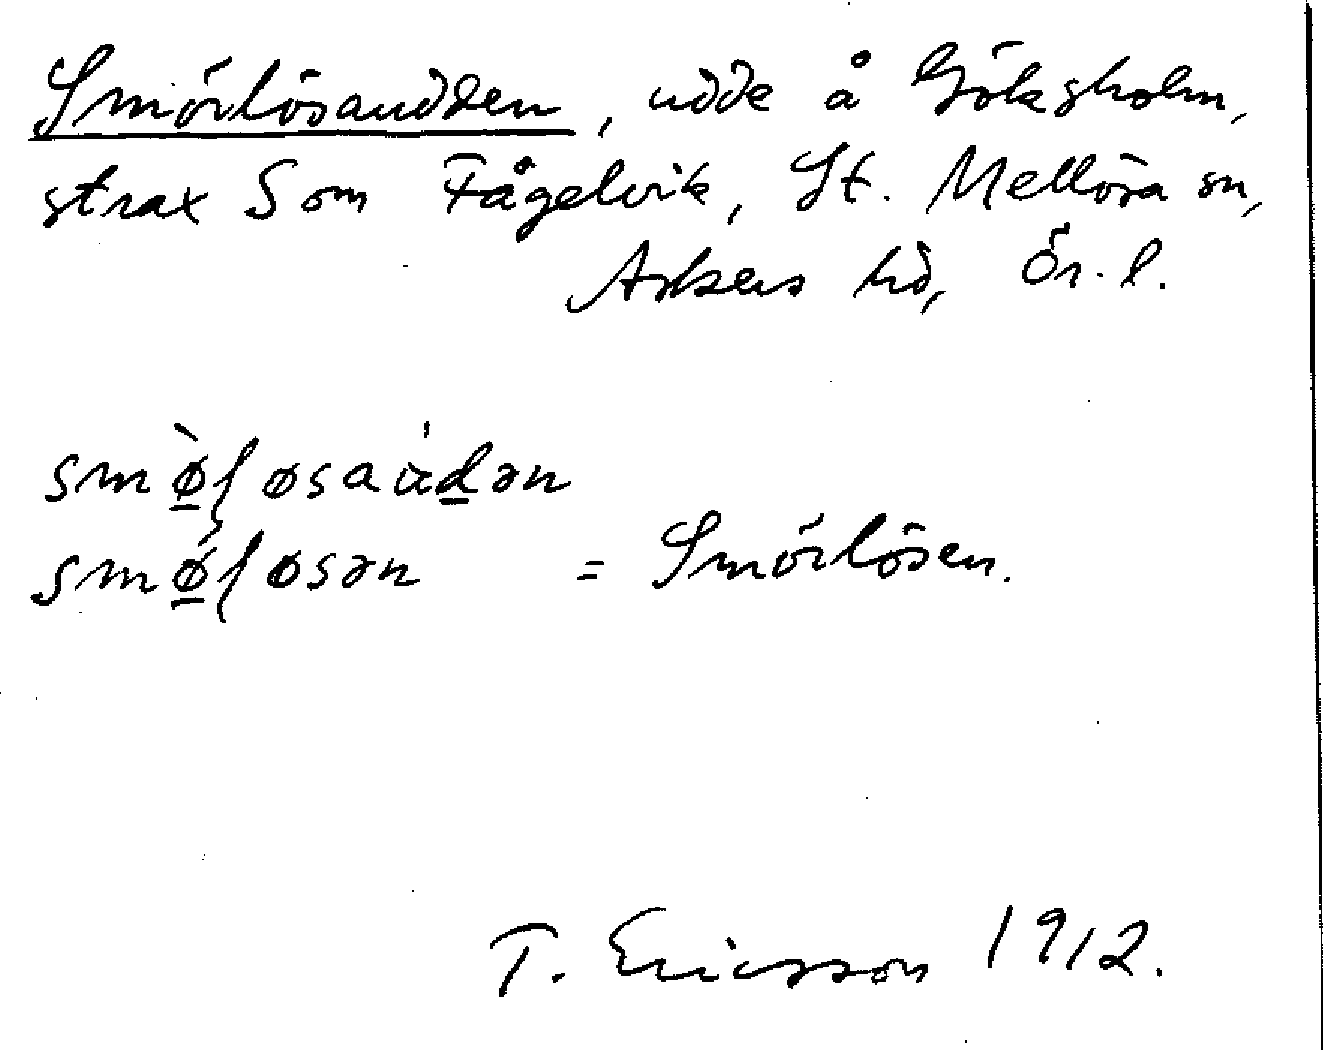 Smörlösaudden, udde å Göksholm,
strax S om Fågelvik, St. Mellösa sn,
Askers hd, Ör. l.
smø̀ɭøsaùdən
smǿɭøsən = Smörlösen.
T. Ericsson 1912.